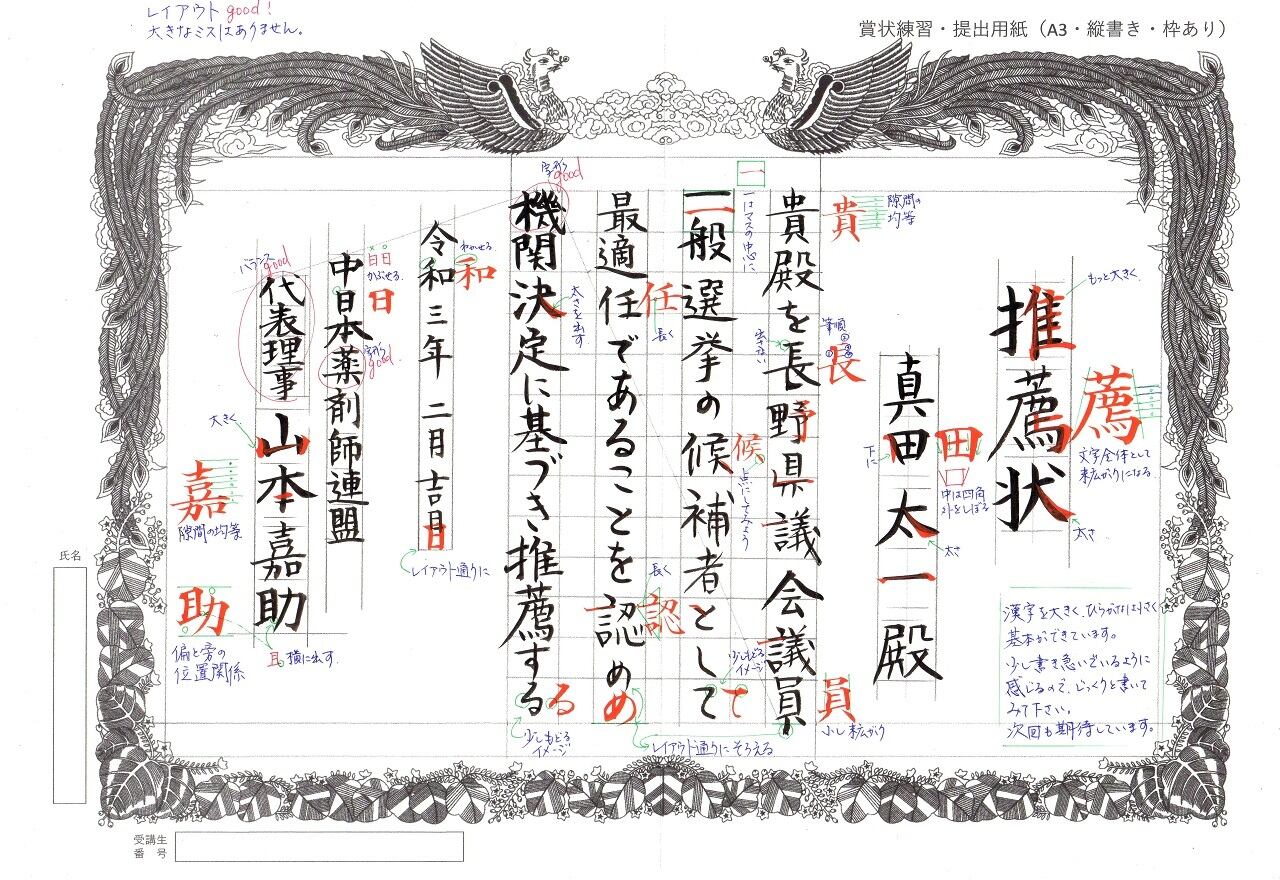 レイアウト good!
大きなミスはありません。
賞状練習・提出用紙（A3・縦書き・枠あり）
推薦状
もっと大きく
薦
文字全体として
末広がりになる
太さ
真田太一殿
下に
田
中は四角
外をしぼる
太さ
貴殿を長野県議会議員
貴
隙間の
均等
筆順
長
出さない
予
員
少し末広がり
一般選挙の候補者として
一
一はマスの中心に
候
点にしてみよう
少しもどる
イメージ
て
最適任であることを認め
任
長く
長く
認
め
レイアウト通りにそろえる
機関決定に基づき推薦する
字形
good
太さを出す
る
少しもどる
イメージ
令和三年二月吉日
和
日
レイアウト通りに
中日本薬剤師連盟
日日
かぶせる
日
字形
good
代表理事 山本嘉助
バランス
good
大きく
嘉
隙間の均等
助
偏と旁の
位置関係
且 横に出す
漢字を大きく、ひらがなは小さく
基本ができています。
少し書き急いでいるように
感じるので、じっくりと書いて
みて下さい。
次回も期待しています。
氏名
受講生
番　号